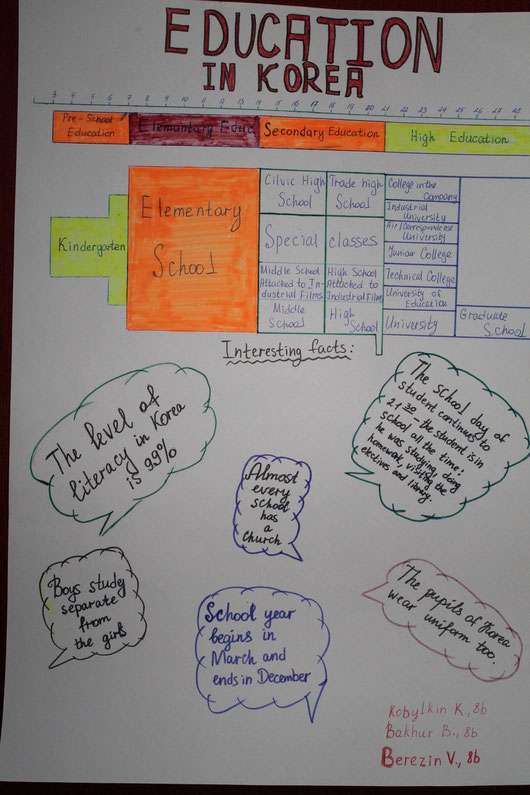 EDUCATION
IN KOREA
3 4 5 6 7 8 9 10 11 12 13 14 15 16 17 18 19 20 21 22 23 24 25 26 27 28
Pre-School
Education
Elementary Educ
Secondary Education
High Education
Kindergarten
Elementary
School
Cilvic High
School
Trade high
School
Special classes
Middle School
Attached to In-
dustrial Films
High School
Attached to
Industrial Films
Middle
School
High
School
College in the
Company
Industrial
University
Air/Correspondense
University
Juniour College
Technical College
University of
Education
University
Graduate
School
Interesting facts:
The level of
literacy in Korea
is 99%
Almost
every
school
has
a
church
The school day of
student continues to
21 30 - the student is in
school all the time:
he was studying, doing
homework, visiting the
electives and library.
Boys study
separate
from
the girls
School year
begins in
March and
ends in December
The pupils of Korea
wear uniform too.
Kobylkin K., 8b
Bakhur B., 8b
Berezin V., 8b